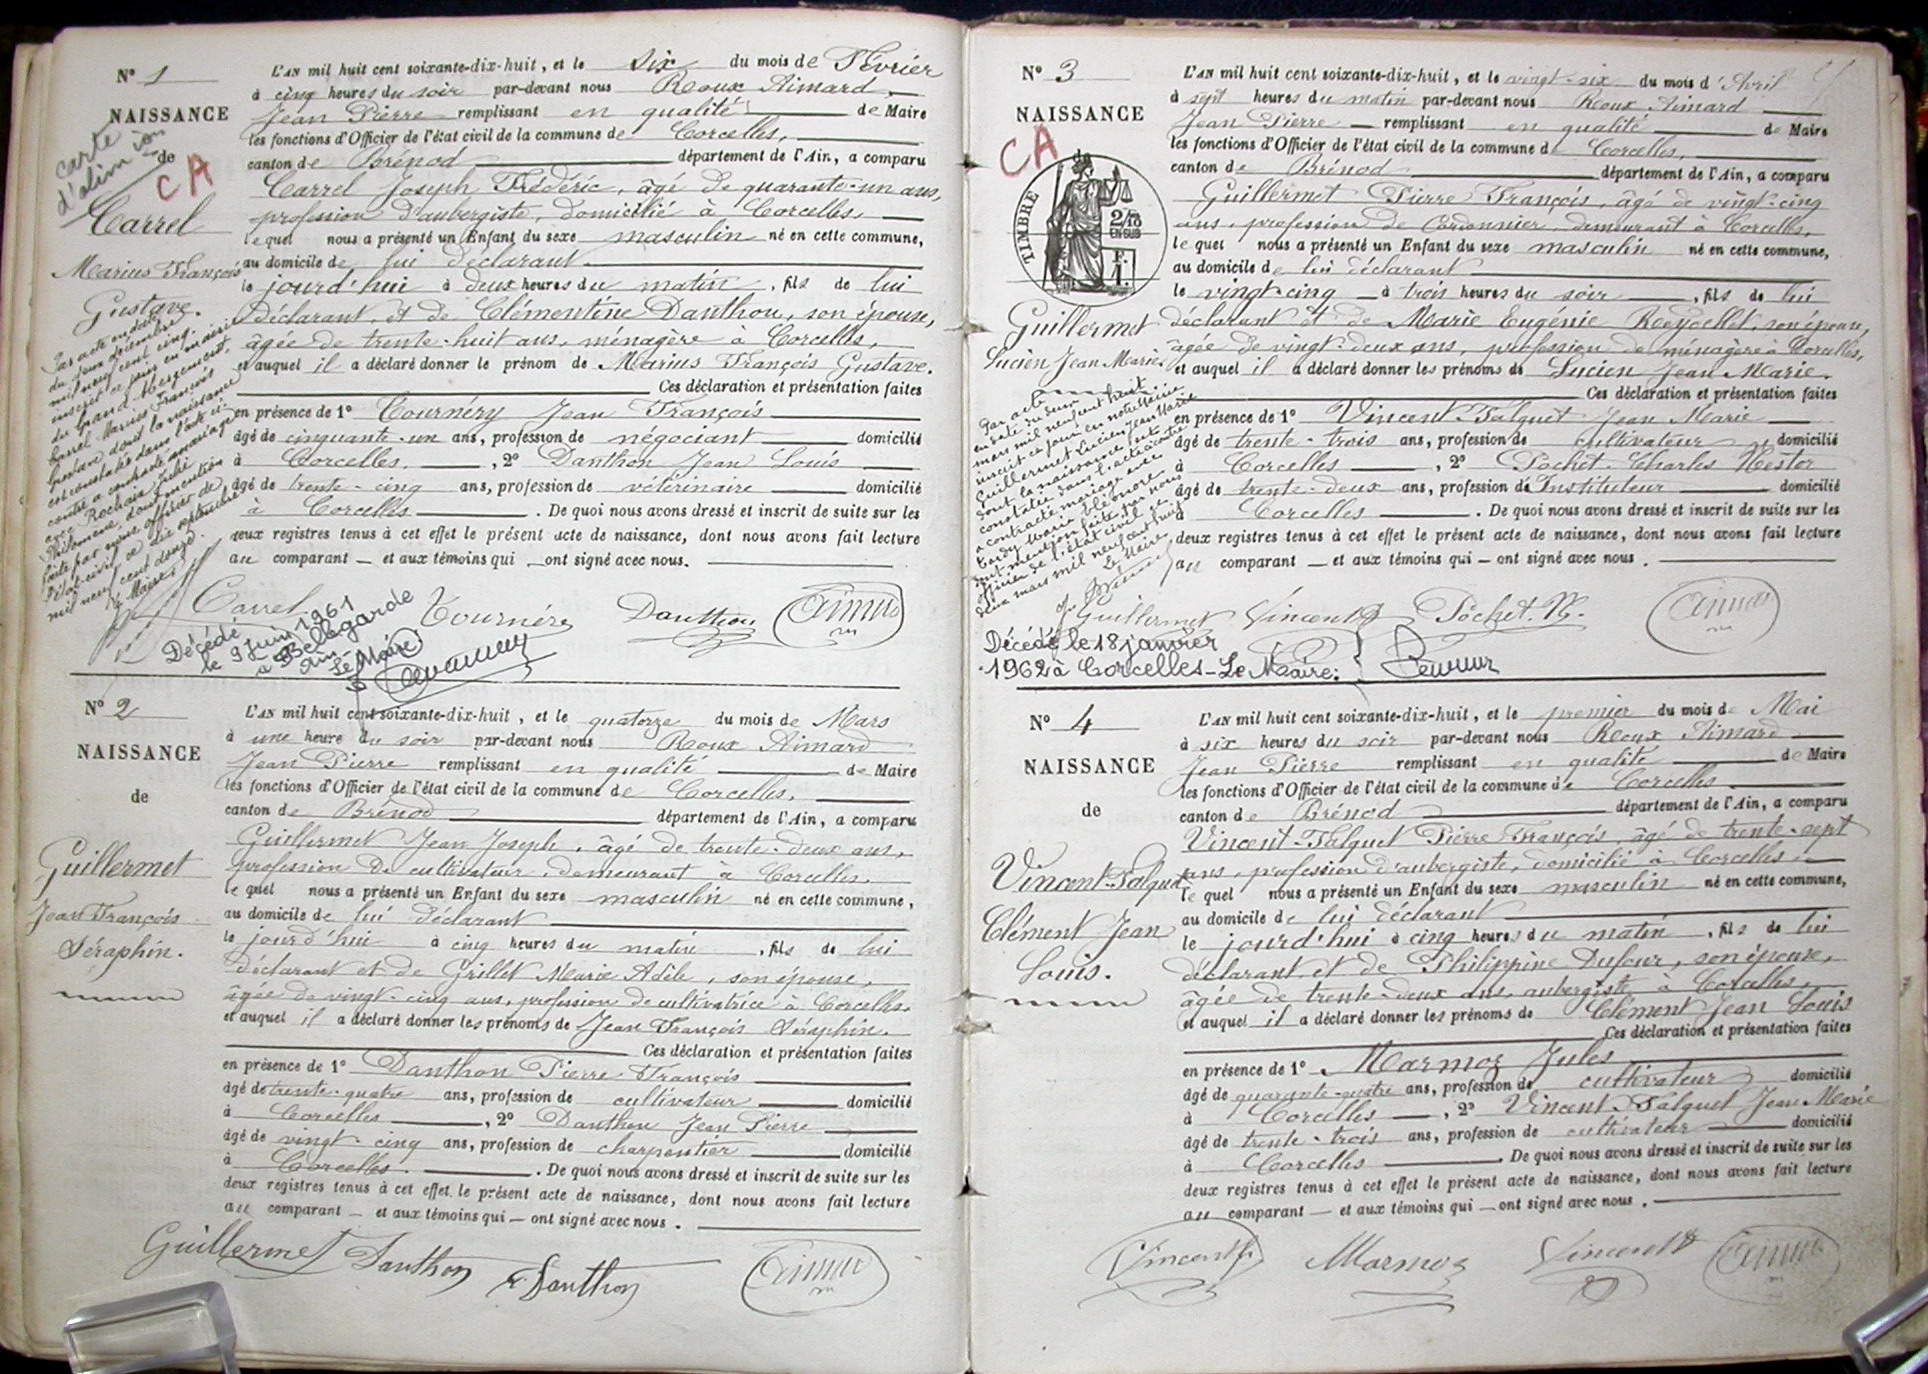 N° 1
NAISSANCE
de
carte
d'alim ion
CA
Carrel
Marius François
Gustave.
L'AN mil huit cent soixante-dix-huit, et le six du mois de Février
à cinq heures du soir par-devant nous Roux Aimard
Jean Pierre remplissant en qualité de Maire
les fonctions d'Officier de l'état civil de la commune de Corcelles,
canton de Brénod département de l'Ain, a comparu
Carrel Joseph Frédéric, âgé de quarante-un ans,
profession d'aubergiste, domicilié à Corcelles,
lequel nous a présenté un Enfant du sexe masculin né en cette commune,
au domicile de lui déclarant
le jourd'hui à deux heures du matin, fils de lui
déclarant, et de Clémentine Danthon, son épouse,
âgée de trente-huit ans, ménagère à Corcelles,
et auquel il a déclaré donner le prénom de Marius François Gustave.
Ces déclaration et présentation faites
en présence de 1° Tournéry Jean François
âgé de cinquante-un ans, profession de négociant domicilié
à Corcelles, 2° Danthon Jean Louis
âgé de trente-cinq ans, profession de vétérinaire domicilié
à Corcelles. De quoi nous avons dressé et inscrit de suite sur les
deux registres tenus à cet effet le présent acte de naissance, dont nous avons fait lecture
au comparant — et aux témoins qui — ont signé avec nous.
Par acte en date
du deux décembre
mil neuf cent cinq
inscrit ce jour en mairie
du Grand Abergement,
Carrel Marius François
Gustave dont la naissance
est constatée dans l'acte ci-
contre a contracté mariage
avec Rochaix Julie
Philomène, dont mention
faite par nous officier de
l'état-civil ce dix septembre
mil neuf cent douze.
Le Maire,
Carrel Tournéry Danthon Aimard
Décédé
le 9 juin 1961
à Bellegarde
Ain -
Le Maire
N° 2
NAISSANCE
de
Guillermet
Jean François
Séraphin.
L'AN mil huit cent soixante-dix-huit, et le quatorze du mois de Mars
à une heure du soir par-devant nous Roux Aimard
Jean Pierre remplissant en qualité de Maire
les fonctions d'Officier de l'état civil de la commune de Corcelles,
canton de Brénod département de l'Ain, a comparu
Guillermet Jean Joseph, âgé de trente-deux ans,
profession de cultivateur, demeurant à Corcelles,
lequel nous a présenté un Enfant du sexe masculin né en cette commune,
au domicile de lui déclarant
le jourd'hui à cinq heures du matin, fils de lui
déclarant et de Grillet Marie Adèle, son épouse,
âgée de vingt-cinq ans, profession de cultivatrice à Corcelles,
et auquel il a déclaré donner les prénoms de Jean François Séraphin.
Ces déclaration et présentation faites
en présence de 1° Danthon Pierre François
âgé de trente-quatre ans, profession de cultivateur domicilié
à Corcelles, 2° Danthon Jean Pierre
âgé de vingt-cinq ans, profession de charpentier domicilié
à Corcelles. De quoi nous avons dressé et inscrit de suite sur les
deux registres tenus à cet effet le présent acte de naissance, dont nous avons fait lecture
au comparant — et aux témoins qui — ont signé avec nous.
Guillermet Danthon Danthon Aimard
N° 3
NAISSANCE
de
CA
TIMBRE
2/10
EN SUS
F.
1.
Guillermet
Lucien Jean Marie.
L'AN mil huit cent soixante-dix-huit, et le vingt-six du mois d'Avril
à sept heures du matin par-devant nous Roux Aimard
Jean Pierre — remplissant en qualité de Maire
les fonctions d'Officier de l'état civil de la commune de Corcelles,
canton de Brénod département de l'Ain, a comparu
Guillermet Pierre François, âgé de vingt-cinq
ans, profession de Cordonnier, demeurant à Corcelles,
lequel nous a présenté un Enfant du sexe masculin né en cette commune,
au domicile de lui déclarant
le vingt-cinq — à trois heures du soir, fils de lui
déclarant et de Marie Eugénie Reydellet, son épouse,
âgée de vingt-deux ans, profession de ménagère à Corcelles,
et auquel il a déclaré donner les prénoms de Lucien Jean Marie.
Ces déclaration et présentation faites
en présence de 1° Vincent-Falquet Jean Marie
âgé de trente-trois ans, profession de cultivateur domicilié
à Corcelles, 2° Pochet Charles Nestor
âgé de trente-deux ans, profession d'Instituteur domicilié
à Corcelles. De quoi nous avons dressé et inscrit de suite sur les
deux registres tenus à cet effet le présent acte de naissance, dont nous avons fait lecture
au comparant — et aux témoins qui — ont signé avec nous.
Par acte
en date de deux
mars mil neuf cent huit
inscrit ce jour en notre mairie
Guillermet Lucien Jean Marie
dont la naissance est
constatée dans l'acte ci-contre
a contracté mariage avec
Tardy Marie Eléonore
dont mention faite par nous
officier de l'état civil ce
deux mars mil neuf cent huit
Le Maire
Guillermet Vincent Pochet. N. Aimard
Décédé le 18 janvier
1962 à Corcelles - Le Maire:
N° 4
NAISSANCE
de
Vincent-Falquet
Clément Jean
Louis.
L'AN mil huit cent soixante-dix-huit, et le premier du mois de Mai
à six heures du soir par-devant nous Roux Aimard
Jean Pierre remplissant en qualité de Maire
les fonctions d'Officier de l'état civil de la commune de Corcelles
canton de Brénod département de l'Ain, a comparu
Vincent-Falquet Pierre François âgé de trente-sept
ans, profession d'aubergiste, domicilié à Corcelles,
lequel nous a présenté un Enfant du sexe masculin né en cette commune,
au domicile de lui déclarant
le jourd'hui à cinq heures du matin, fils de lui
déclarant et de Philippine Dufour, son épouse,
âgée de trente-deux ans, aubergiste à Corcelles,
et auquel il a déclaré donner les prénoms de Clément Jean Louis
Ces déclaration et présentation faites
en présence de 1° Marmoz Jules
âgé de quarante-quatre ans, profession de cultivateur domicilié
à Corcelles, 2° Vincent-Falquet Jean Marie
âgé de trente-trois ans, profession de cultivateur domicilié
à Corcelles. De quoi nous avons dressé et inscrit de suite sur les
deux registres tenus à cet effet le présent acte de naissance, dont nous avons fait lecture
au comparant — et aux témoins qui — ont signé avec nous.
Vincent Marmoz Vincent Aimard